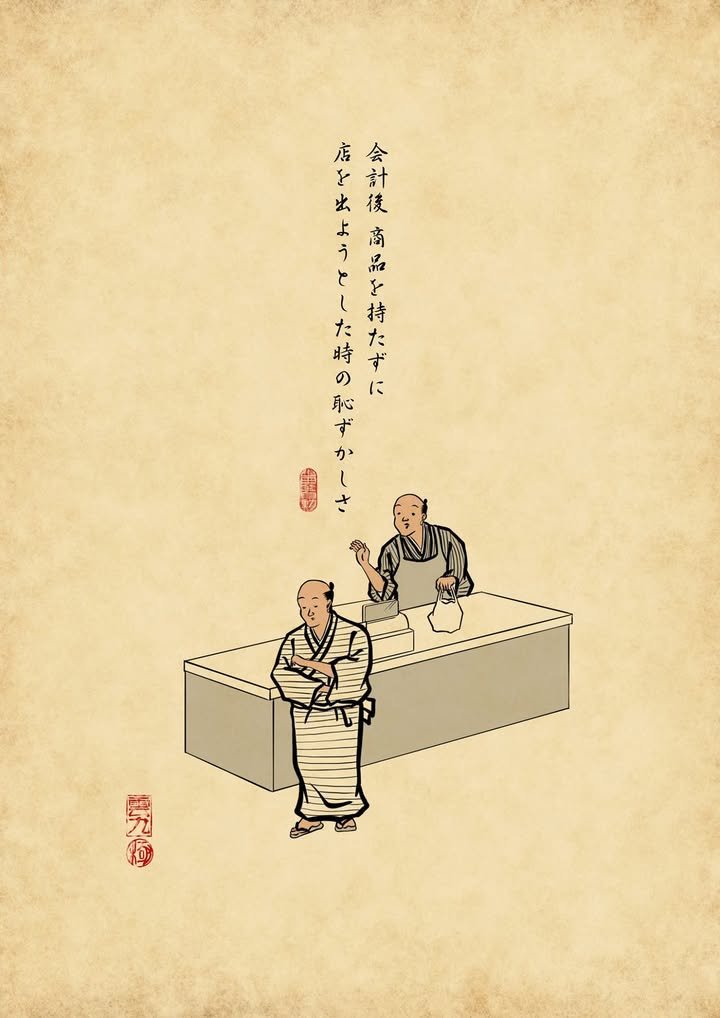 会計後 商品を持たずに
店を出ようとした時の恥ずかしさ